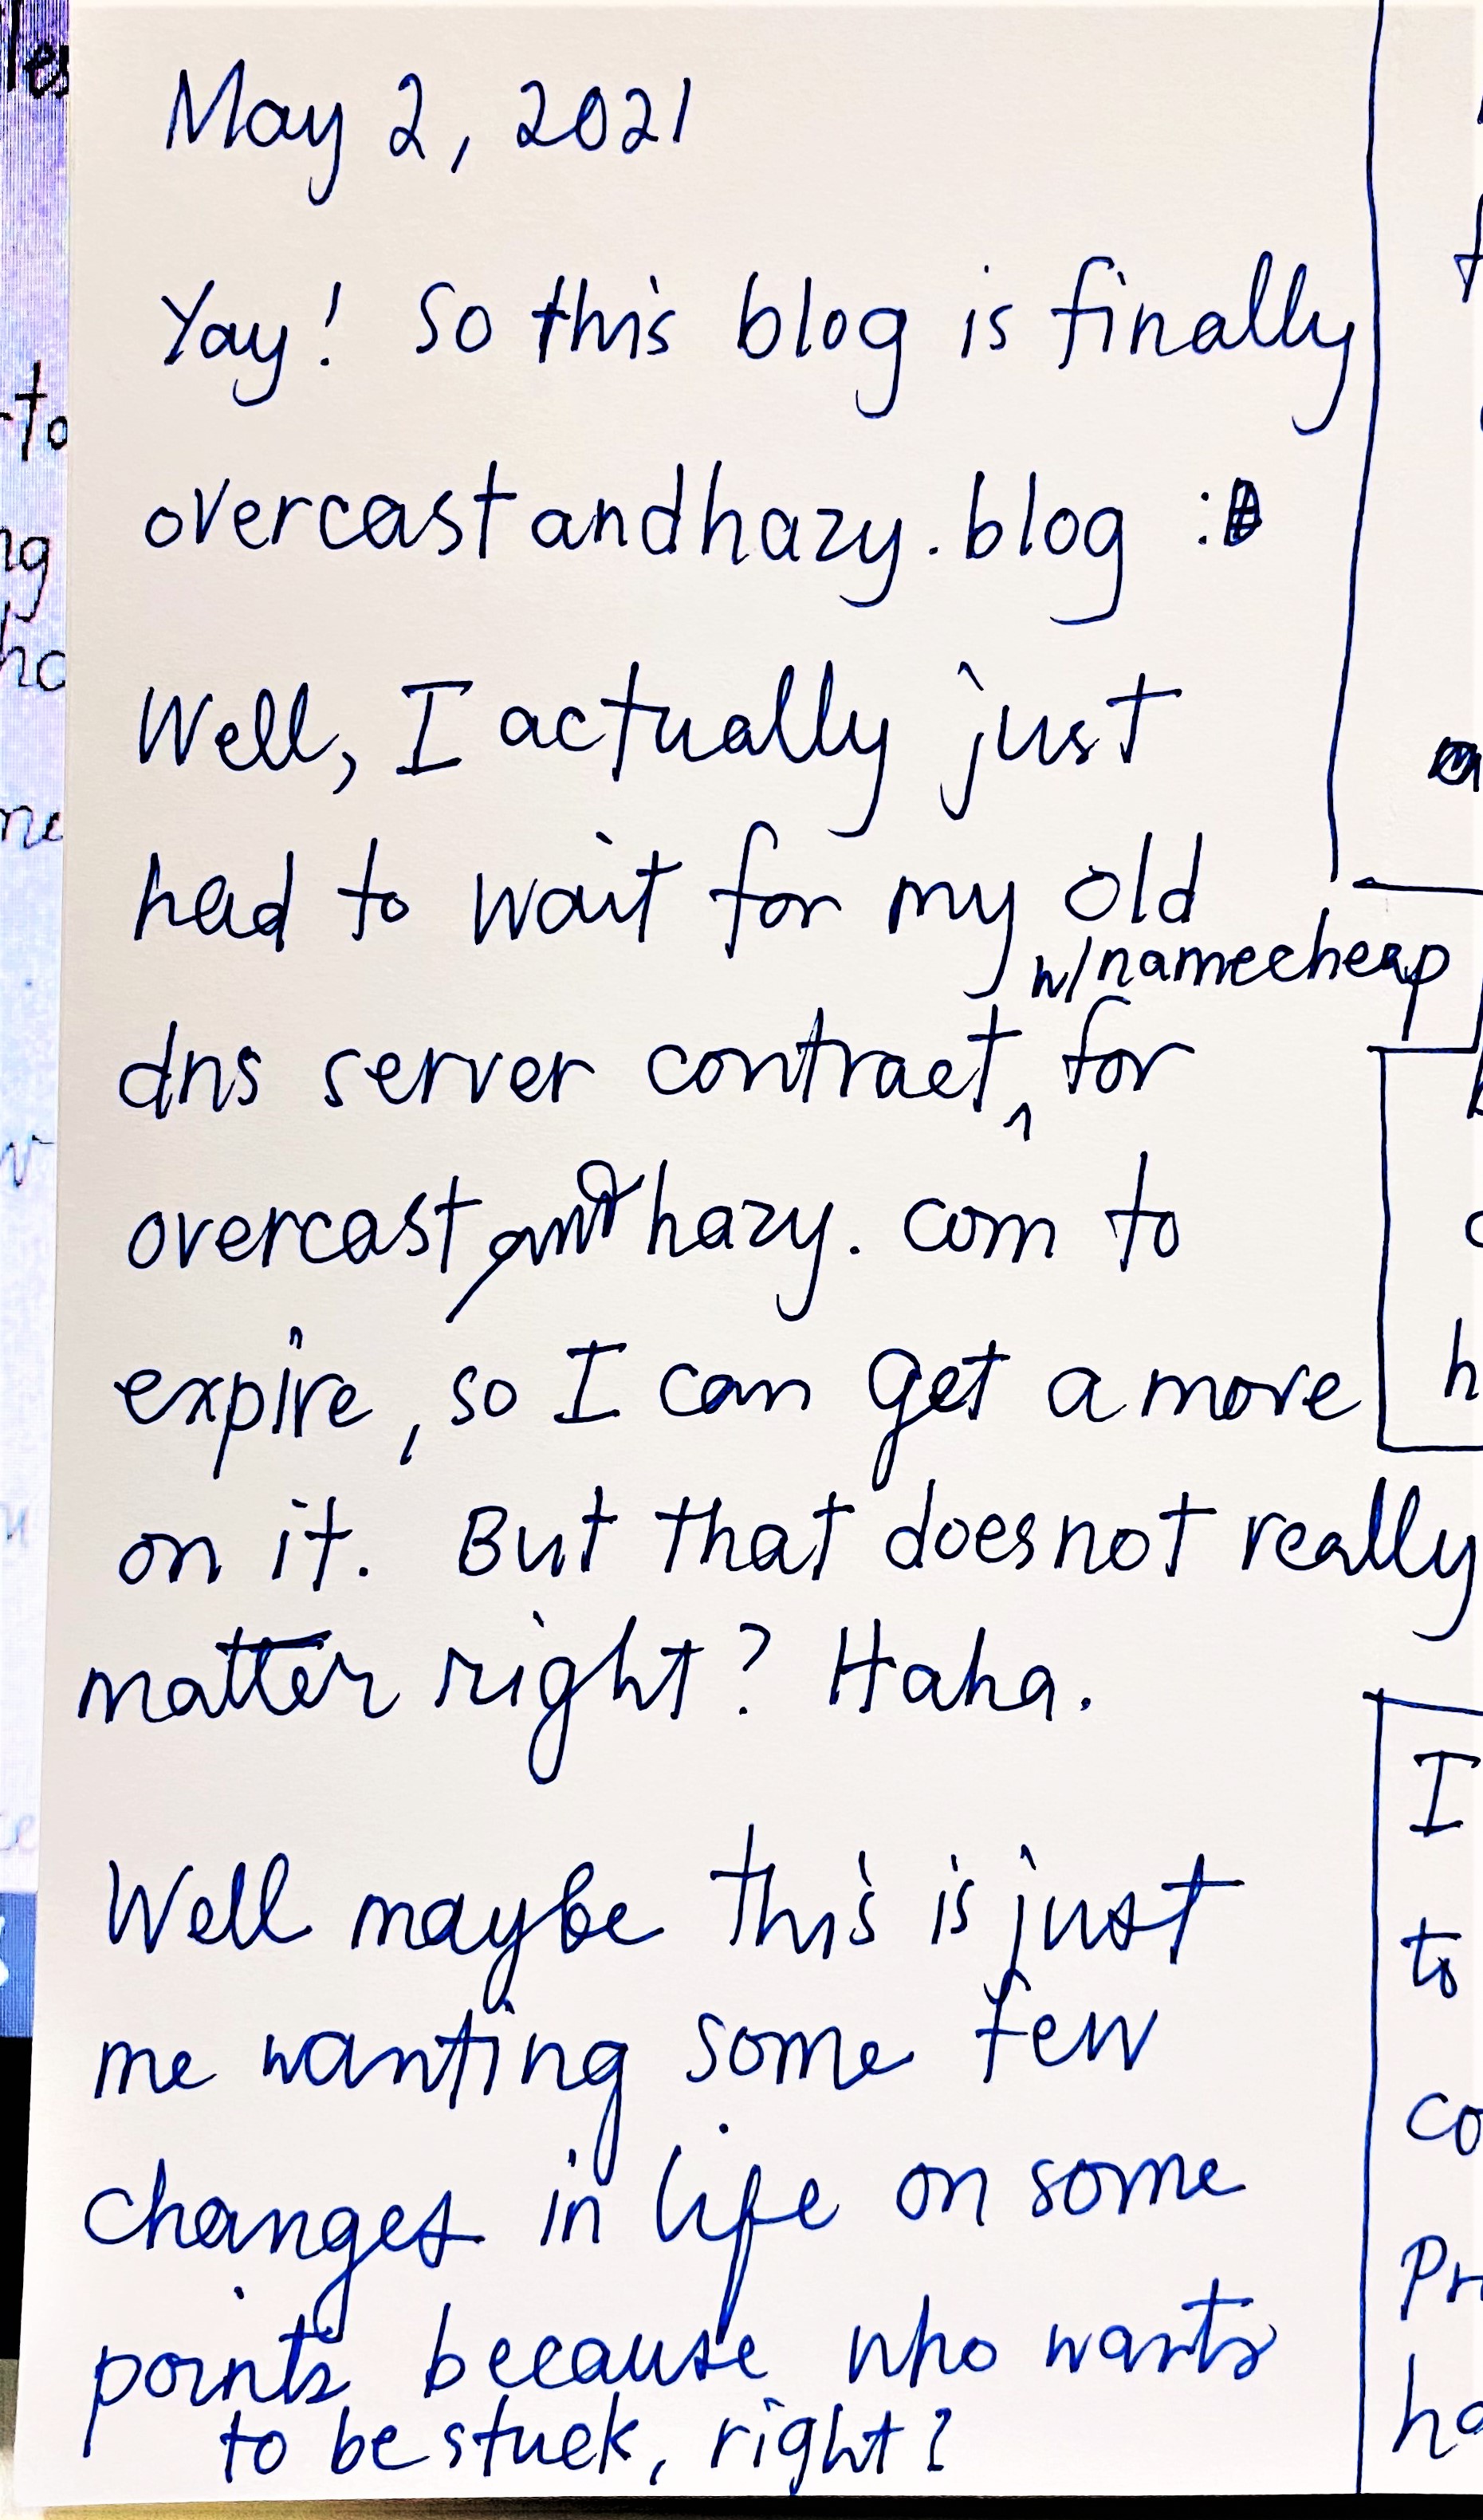 May 2, 2021
Yay! So this blog is finally
overcastandhazy.blog :D
Well, I actually just
had to wait for my old
w/namecheap
dns server contract, for
overcast and hazy.com to
expire, so I can get a more
on it. But that does not really
matter right? Haha.
Well maybe this is just
me wanting some few
changes in life on some
points because who wants
to be stuck, right?
I
to
co
pr
ha